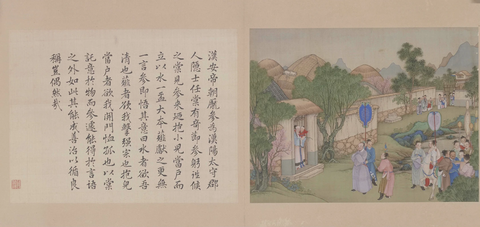 漢安帝朝龐參為漢陽太守郡
人隱士任棠有奇節參躬往候
之棠見參來迺抱小兒當戶而
立以水一盂大本薤獻之更無
一言參即悟其意曰水者欲吾
清也薤者欲我擊强宗也抱兒
當戶者欲我開門恤孤也以棠
託意於物而參遽能得於言語
之外如此其能成善治以循良
稱豈偶然哉